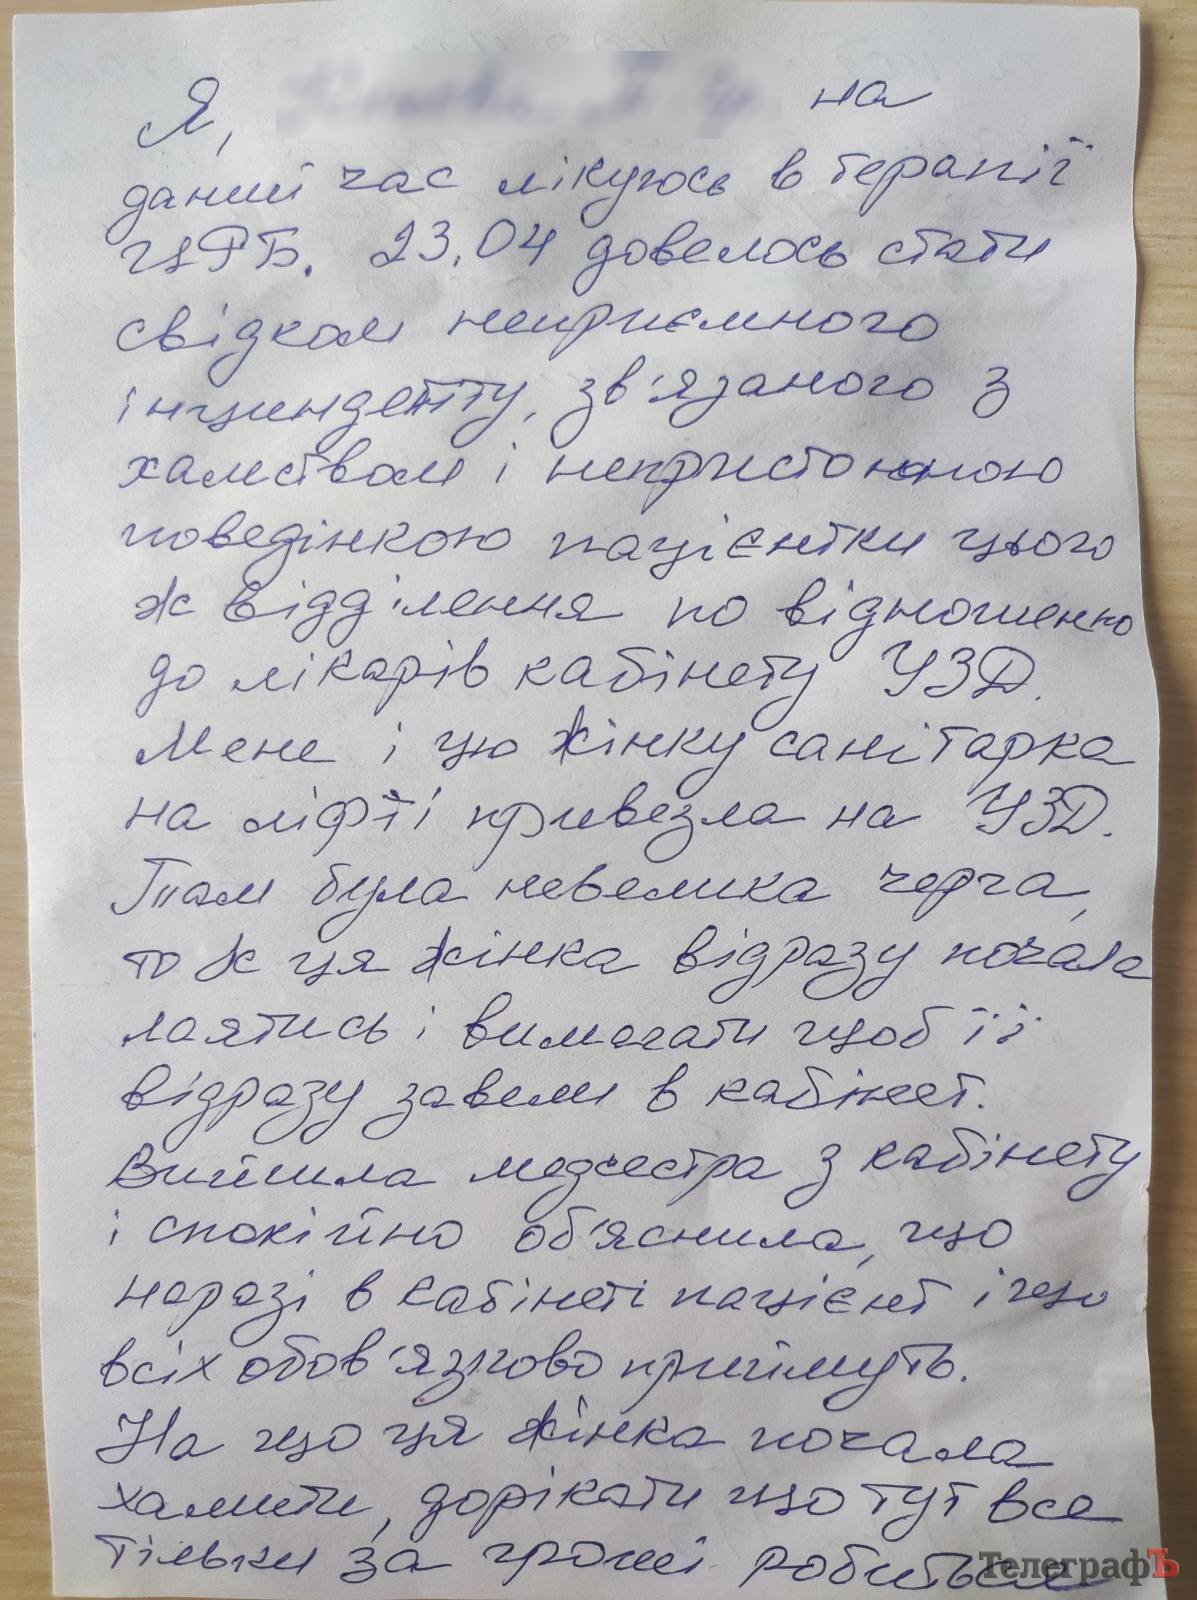 Я, на
даний час лікуюсь в терапії
ЦРБ. 23.04 довелось стати
свідком неприємного
інциндетту, зв'язаного з
хамством і непристойною
поведінкою пацієнтки цього
ж відділення по відношенню
до лікарів кабінету УЗД.
Мене і цю жінку санітарка
на ліфті привезла на УЗД.
Там була невелика черга,
то ж ця жінка відразу почала
лаятись і вимагати щоб її
відразу завели в кабінет.
Вийшла медсестра з кабінету
і спокійно об'яснила, що
наразі в кабінеті пацієнт і що
всіх обов'язково приймуть.
На що ця жінка почала
хамити, дорікати що тут все
тільки за гроші робиться
ТелеграфЪ